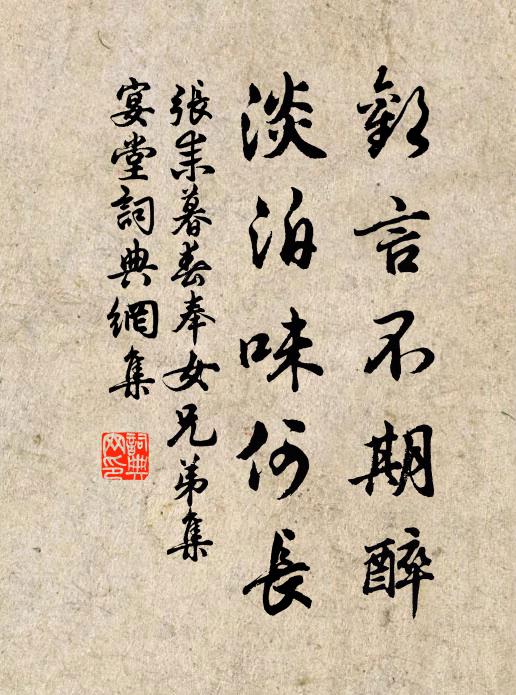 歡言不期醉
淡泊味何長
張耒暮春奉女兄弟集
宴堂詞典網集
詞典
网印